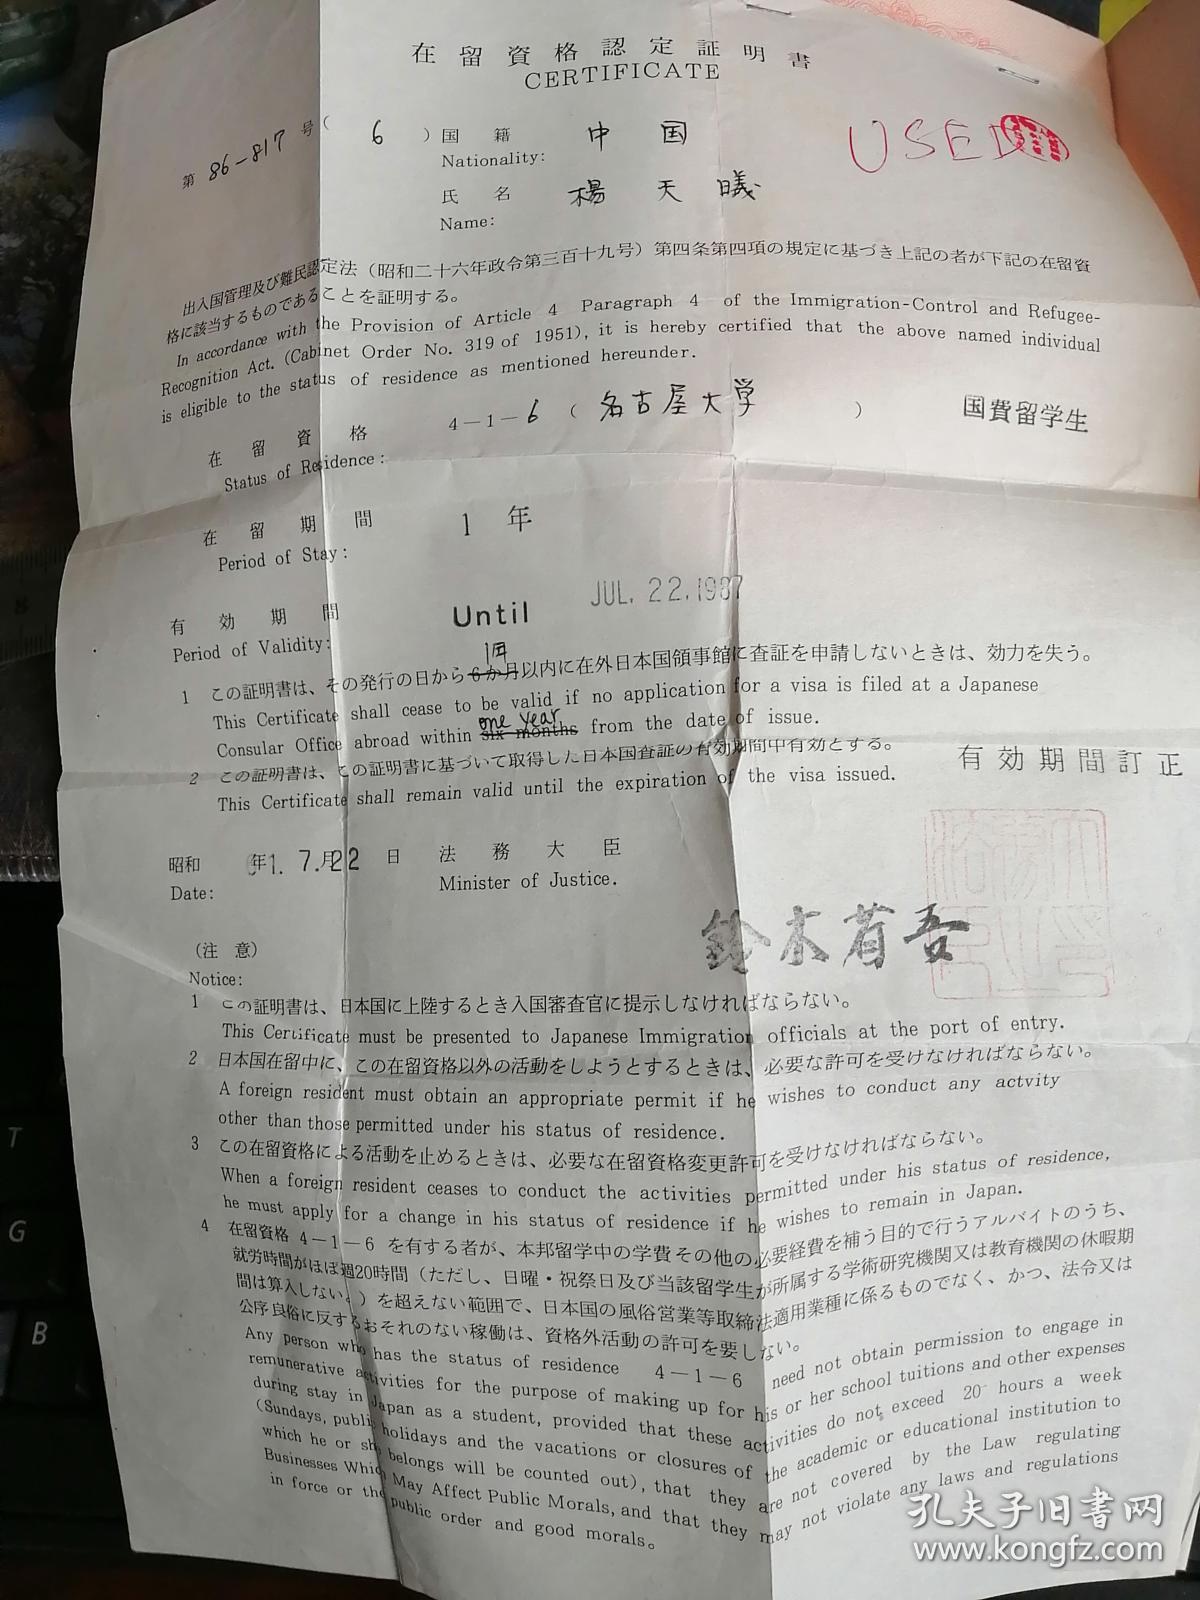 在留資格認定証明書
CERTIFICATE
第 86-817 号 ( 6 ) 国籍 中国
Nationality:
USED
氏名 楊天曦
Name:
出入国管理及び難民認定法(昭和二十六年政令第三百十九号)第四条第四項の規定に基づき上記の者が下記の在留資
格に該当するものであることを証明する。
In accordance with the Provision of Article 4 Paragraph 4 of the Immigration-Control and Refugee-
Recognition Act. (Cabinet Order No. 319 of 1951), it is hereby certified that the above named individual
is eligible to the status of residence as mentioned hereunder.
在留資格 4-1-6 (名古屋大学) 国費留学生
Status of Residence:
在留期間 1年
Period of Stay:
有効期間 Until JUL. 22. 1987
Period of Validity:
1年
1 この証明書は、その発行の日から6か月以内に在外日本国領事館に査証を申請しないときは、効力を失う。
This Certificate shall cease to be valid if no application for a visa is filed at a Japanese
one year
Consular Office abroad within six months from the date of issue.
2 この証明書は、この証明書に基づいて取得した日本国査証の有効期間中有効とする。
有効期間訂正
This Certificate shall remain valid until the expiration of the visa issued.
昭和 61年 7.月22日 法務大臣
Date: Minister of Justice.
鈴木省吾
(注意)
Notice:
1 この証明書は、日本国に上陸するとき入国審査官に提示しなければならない。
This Certificate must be presented to Japanese Immigration officials at the port of entry.
2 日本国在留中に、この在留資格以外の活動をしようとするときは、必要な許可を受けなければならない。
A foreign resident must obtain an appropriate permit if he wishes to conduct any actvity
other than those permitted under his status of residence.
3 この在留資格による活動を止めるときは、必要な在留資格変更許可を受けなければならない。
When a foreign resident ceases to conduct the activities permitted under his status of residence,
he must apply for a change in his status of residence if he wishes to remain in Japan.
4 在留資格 4-1-6 を有する者が、本邦留学中の学費その他の必要経費を補う目的で行うアルバイトのうち、
就労時間がほぼ週20時間(ただし、日曜・祝祭日及び当該留学生が所属する学術研究機関又は教育機関の休暇期
間は算入しない。)を超えない範囲で、日本国の風俗営業等取締法適用業種に係るものでなく、かつ、法令又は
公序良俗に反するおそれのない稼働は、資格外活動の許可を要しない。
Any person who has the status of residence 4-1-6 need not obtain permission to engage in
remunerative activities for the purpose of making up for his or her school tuitions and other expenses
during stay in Japan as a student, provided that these activities do not exceed 20 hours a week
(Sundays, public holidays and the vacations or closures of the academic or educational institution to
which he or she belongs will be counted out), that they are not covered by the Law regulating
Businesses Which May Affect Public Morals, and that they may not violate any laws and regulations
in force or the public order and good morals。
T
G
B
孔夫子旧书网
www.kongfz.com